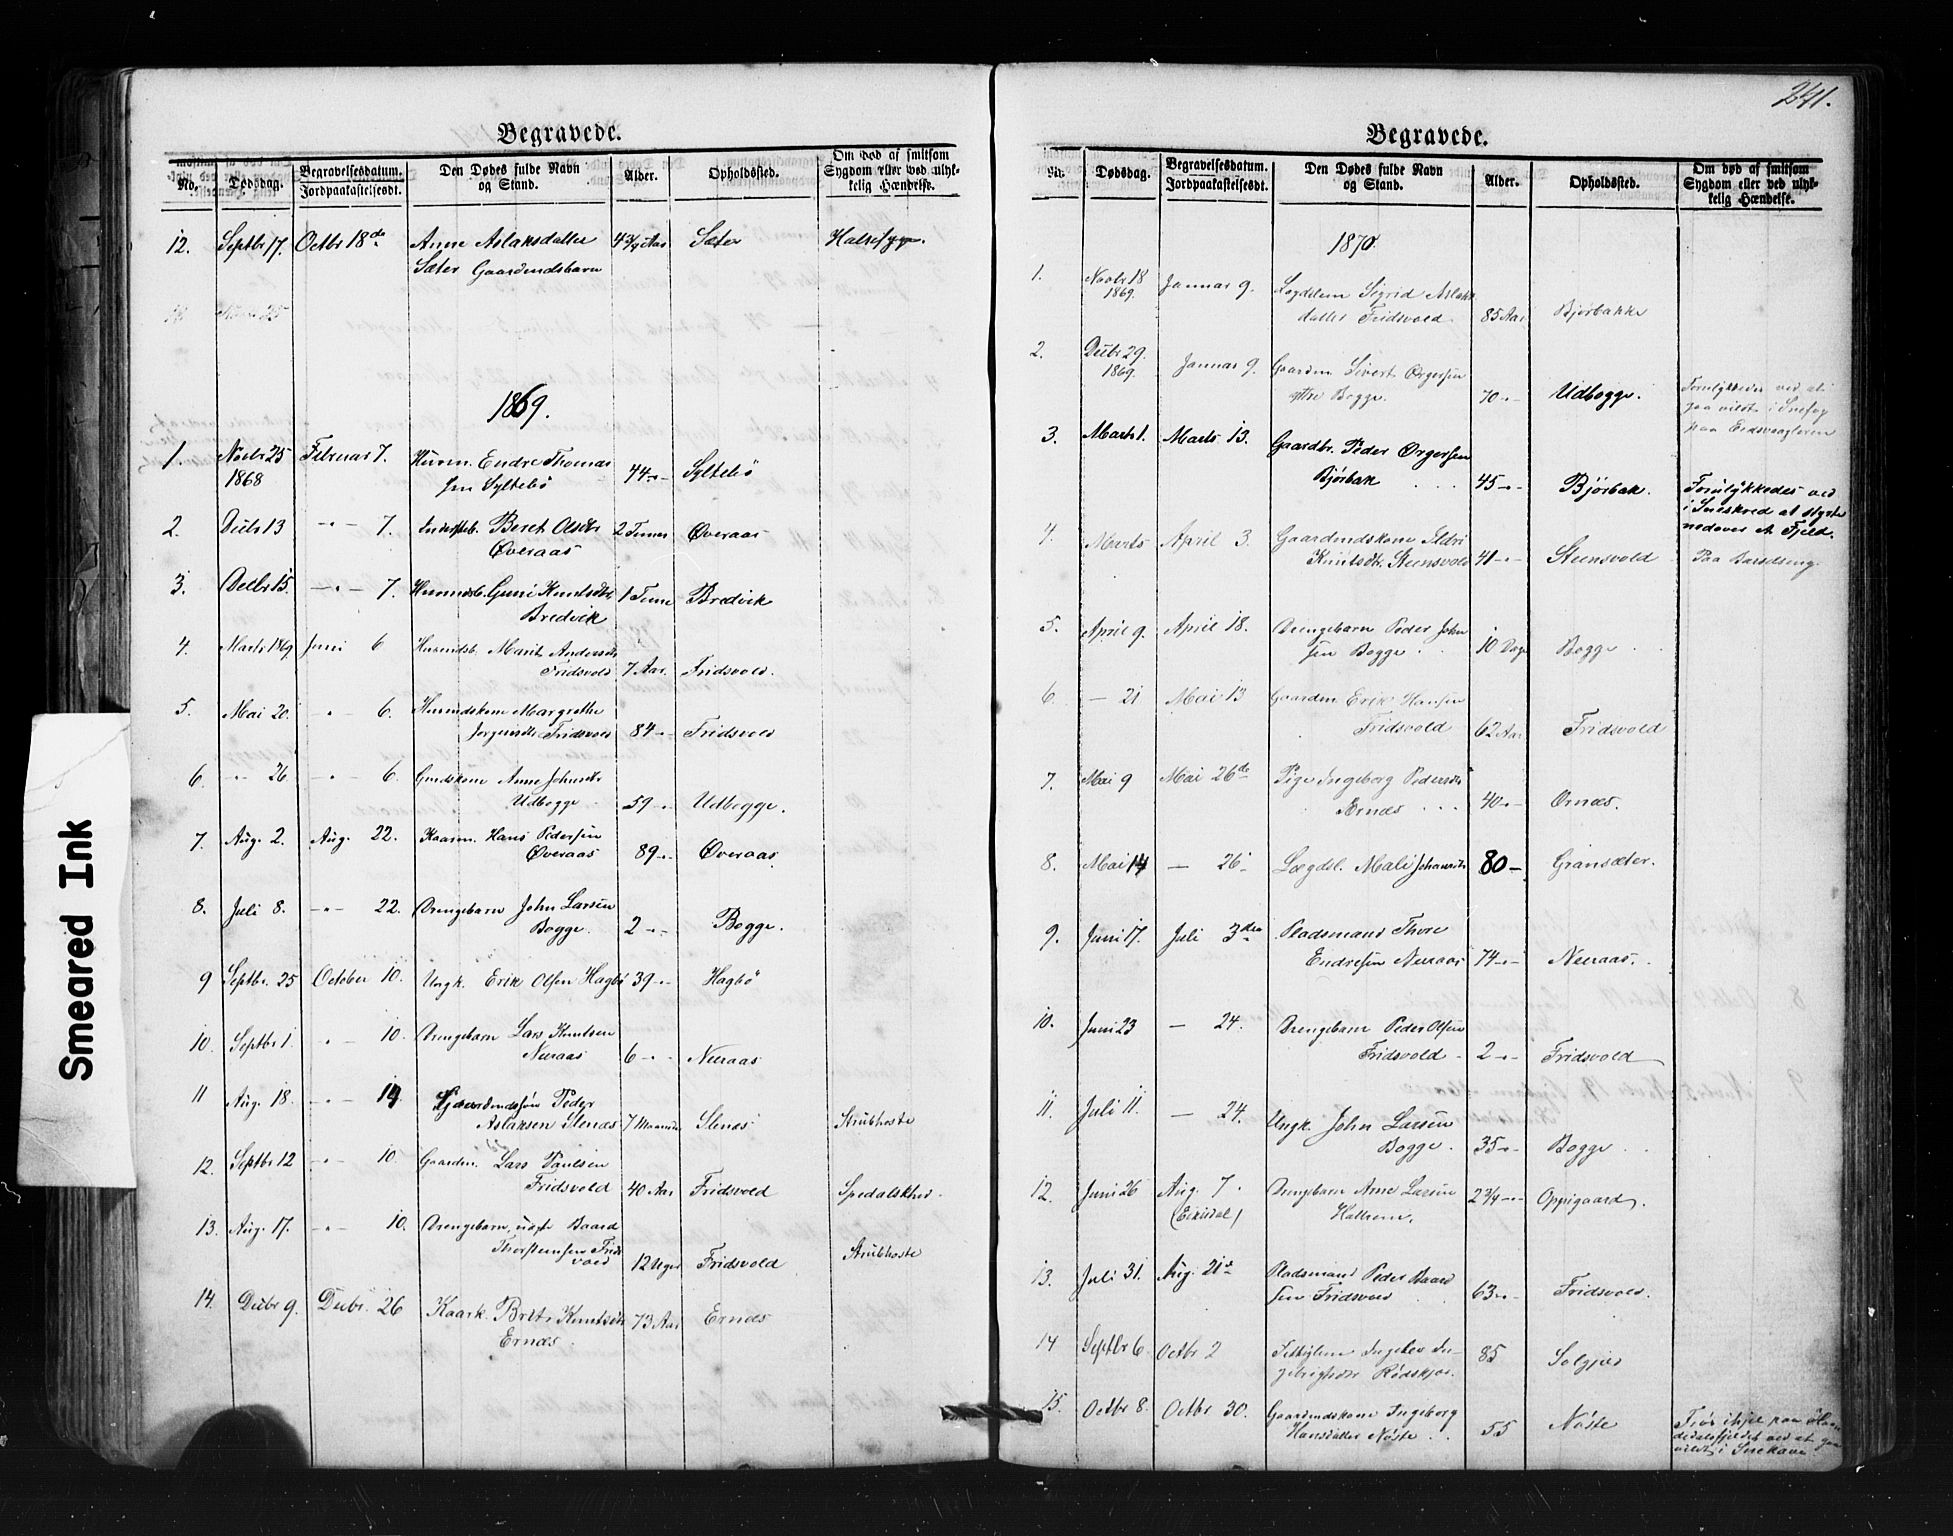 241.
Begravede.
No. Dödsdag. Begravelsesdatum. Jordpaakastelsesdt. Den Dödes fulde Navn og Stand. Alder. Opholdssted. Om död af smitsom Sygdom eller ved ulykkelig Hændelse.
12. Septbr 17. Octbr 18de Anne Aslaksdatter 4 3/4 Aar Sæter Halssyge.
Sæter Gaardmdsbarn
1869.
1. Novbr 25 Februar 7. Husm. Endre Thomas
1868 sen Syltebö 44 -"- Syltebö
2. Decbr 13 -"- 7. Beret Olsdtr 2 Timer Øveraas
Øveraas
3. Decbr 15. -"- 7. Husmdsb. Guri Knutsdtr 1 Time Bredvik
Bredvik
4. Marts 1869 Juni 6 Husmdsb. Marit Andersdtr
Fridsvold 7 Aar. Fridsvold.
5. Mai 20. -"- 6. Husmdskone Margrethe
Jörgensdtr Fridsvold 84 -"- Fridsvold
6. -"- 26 -"- 6. Gmdskone Anne Johnsdtr
Udbogge 59 -"- Udbogge.
7. Aug. 2. Aug. 22. Kaarm. Hans Pedersen
Øveraas 89 -"- Øveraas
8. Juli 8. -"- 22. Drengebarn John Larsen
Bogge. 2 -"- Bogge.
9 Septbr. 25 October 10. Ungk. Erik Olsen Hagbö 39 -"- Hagbö
10. Septbr 1. -"- 10. Drengebarn Lars Knutsen
Neeraas 6 -"- Neeraas
11 Aug. 18. -"- Gaardmdssön Peder
Aslaksen Stenæs 7 Maaneder Stenæs Strubhoste
12. Septbr 12 -"- 10. Gaardm. Lars Paulsen
Fridsvold 40 Aar Fridsvold Spedalskhed.
13. Aug. 17. -"- 10. Drengebarn, uægte Baard
Thorsteinsen Frids
vold 12 Uger Fridsvold Strubhoste
14. Decbr 9. Decbr. 26 Kaark. Brit Knutsdtr 73 Aar Ernæs
Ernæs.
Begravede.
No. Dödsdag. Begravelsesdatum. Jordpaakastelsesdt. Den Dödes fulde Navn og Stand. Alder. Opholdssted. Om död af smitsom Sygdom eller ved ulykkelig Hændelse.
1870.
1. Novbr 18 Januar 9. Lægdslem Sigrid Aslaks
1869. datter Fridsvold. 85 Aar Bjørbakke
2. Decbr 29. Januar 9. Gaardm. Sivert Ørgersen
1869. ytre Bogge. 70 -"- Udbogge. Forulykkedes ved at
gaa vildt i Snefog
paa Eidsvaagleiren
3. Marts 1. Marts 13. Gaardbr. Peder Ørgersen
Bjørbak 45 -"- Bjørbak. Forulykkedes ved
i Sneskred at styrte
nedover et Fjeld.
4. Marts April 3. Gaardmdskone Sidri
Knutsdtr. Steensvold 41 -"- Steensvold Paa Barselseng.
5. April 9. April 18. Drengebarn Peder John
sen Bogge 10 Dage Bogge
6. — 21 Mai 13 Gaardm Erik Hansen
Fridsvold 62 Aar Fridsvold
7. Mai 9 Mai 26de Pige Ingeborg Pedersdtr
Ærnæs 40 -"- Ørnæs.
8. Mai 14 — 26 Lægdsl. Mali Johansdtr 80 — Gransæter.
9. Juni 17. Juli 3den Pladsmand Thore
Endresen Neeraas 74 -"- Neeraas.
10. Juni 23 — 24. Drengebarn Peder Olsen
Fridsvold 2 -"- Fridsvold
11. Juli 11. — 24. Ungk. John Larsen
Bogge. 35 -"- Bogge
12. Juni 26 Aug. 7. Drengebarn Arne Larsen 2 3/4 -"- Oppigaard.
(Eikisdal)
13. Juli 31. Aug. 21de Pladsmand Peder Baard
sen Fridsvold 63 -"- Fridsvold.
14 Septbr 6. Octbr 2 Ingebor In-
gebrigtsdtr Rödskjær. 85 Solgjeld
15. Octbr 8. Octbr 30. Gaardmdskone Ingeborg
Hansdatter Nöste 55 Nöste Frös ihjel paa
ved at gaa
vildt i Snekave.
Smeared Ink